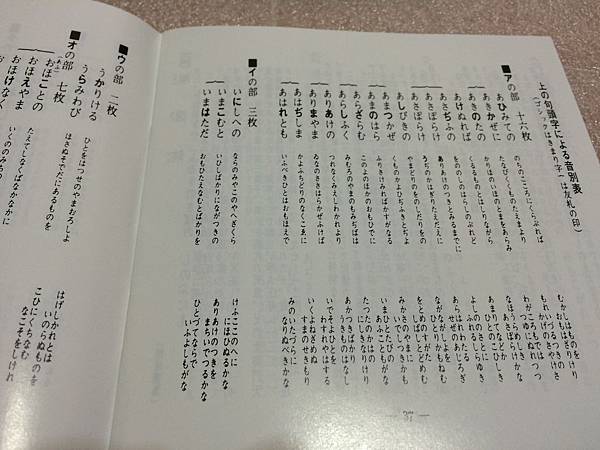 上の句頭字による音別表
(ゴシックはきまり字。⌒は友札の印)
■アの部 十六枚
あひみての のちのこころにくらぶれば むかしはものを おもはざりけり
あきかぜに たなびくくものたえまより もれいづるつきの かげのさやけさ
あきのたの かりほのいほのとまをあらみ わがころもでは つゆにぬれつつ
あけぬれば くるるものとはしりながら なほうらめしき あさぼらけかな
あさぢふの をののしのはらしのぶれど あまりてなどか ひとのこひしき
あさぼらけ ありあけのつきとみるまでに よしののさとに ふれるしらゆき
あさぼらけ うぢのかはぎりたえだえに あらはれわたる せぜのあじろぎ
あしびきの やまどりのをのしだりをの ながながしよを ひとりかもねむ
あまつかぜ くものかよひぢふきとぢよ をとめのすがた しばしとどめむ
あまのはら ふりさけみればかすがなる みかさのやまに いでしつきかも
あらざらむ このよのほかのおもひでに いまひとたびの あふこともがな
あらしふく みむろのやまのもみぢばは たつたのかはの にしきなりけり
ありあけの つれなくみえしわかれより あかつきばかり うきものはなし
ありまやま ゐなのささはらかぜふけば いでそよひとを わすれやはする
あはぢしま かよふちどりのなくこゑに いくよねざめぬ すまのせきもり
あはれとも いふべきひとはおもほえで みのいたづらに なりぬべきかな
■イの部 三枚
いにしへの ならのみやこのやへざくら けふここのへに にほひぬるかな
いまこむと いひしばかりにながつきの ありあけのつきを まちいでつるかな
いまはただ おもひたえなむとばかりを ひとづてならで いふよしもがな
― 37 ―
■ウの部 二枚
うかりける ひとをはつせのやまおろしよ はげしかれとは いのらぬものを
うらみわび ほさぬそでだにあるものを こひにくちなむ なこそをしけれ
■オの部 七枚
おほことの たえてしなくばなかなかに
(あふ)
おほえやま いくののみちの
おほけなく